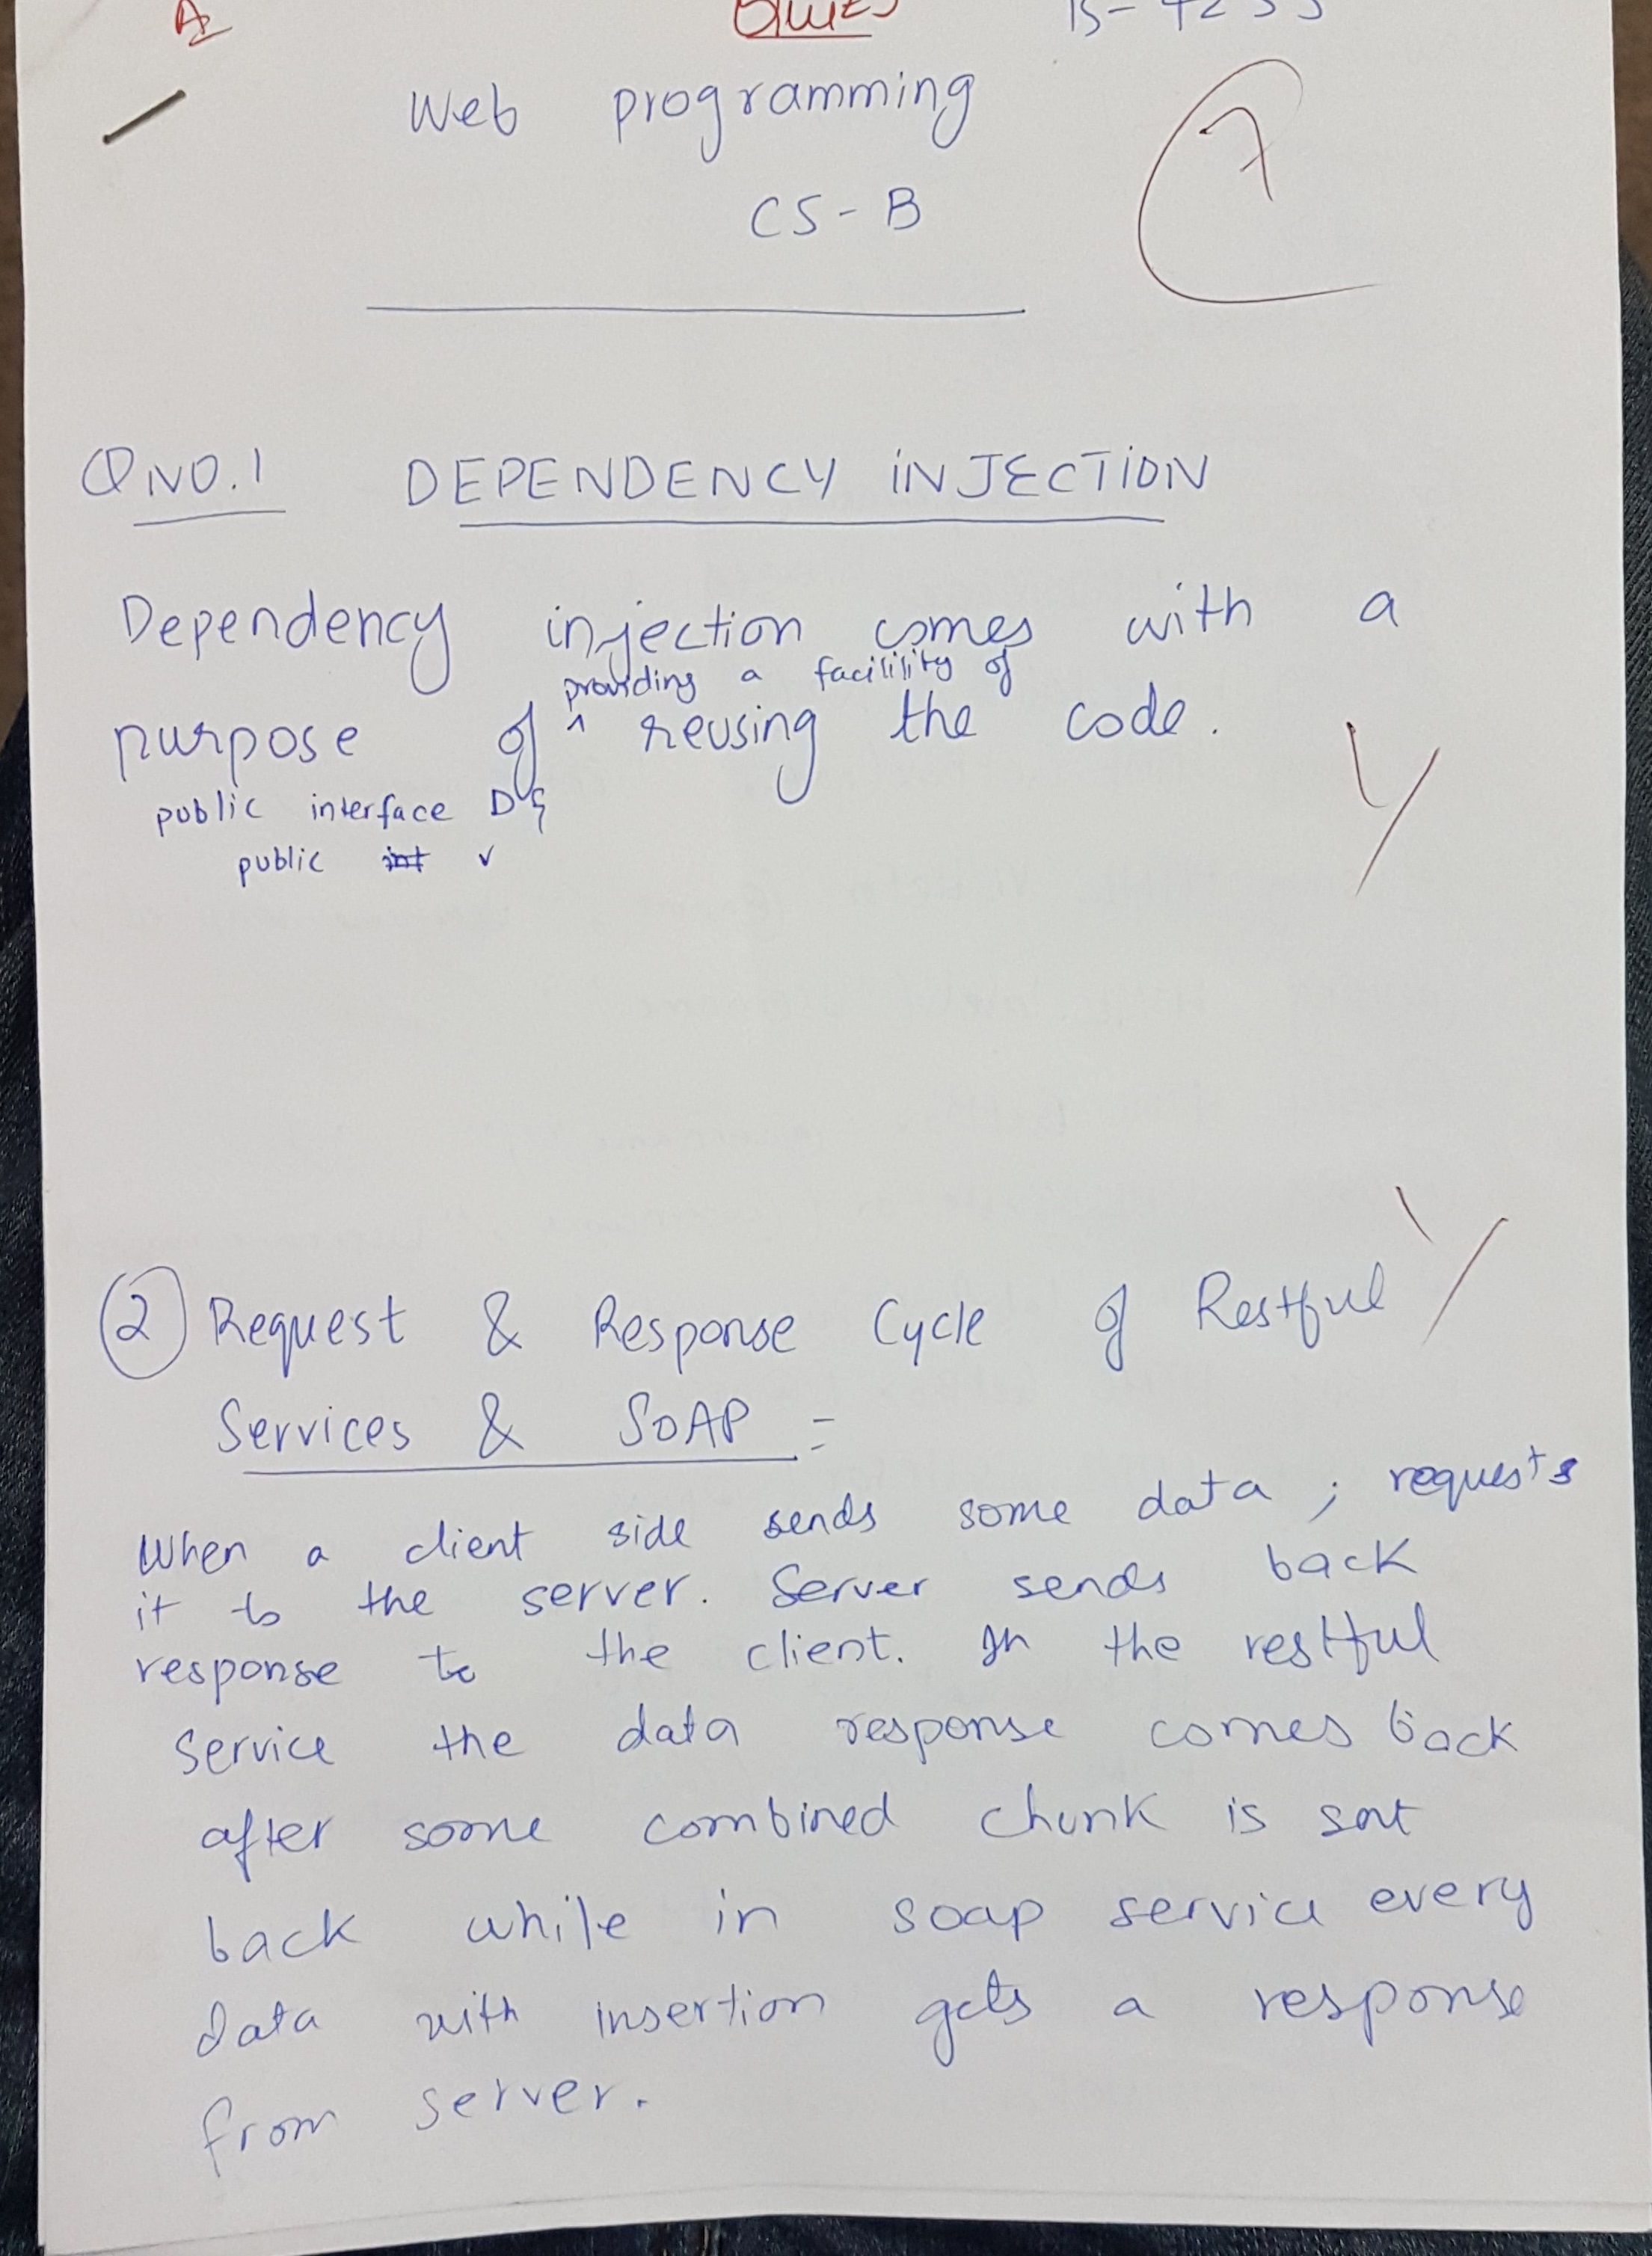 A
15-4253
Web programming
CS-B
7
QNO.1 DEPENDENCY INJECTION
Dependency injection comes with a
providing a facilility of
purpose of ^ reusing the code.
public interface D {
public int v
2 Request & Response Cycle of Restful
Services & SOAP =
When a client side sends some data ; requests
it to the server. Server sends back
response to the client. In the restful
service the data response comes back
after some combined chunk is sent
back while in soap service every
data with insertion gets a response
from server.